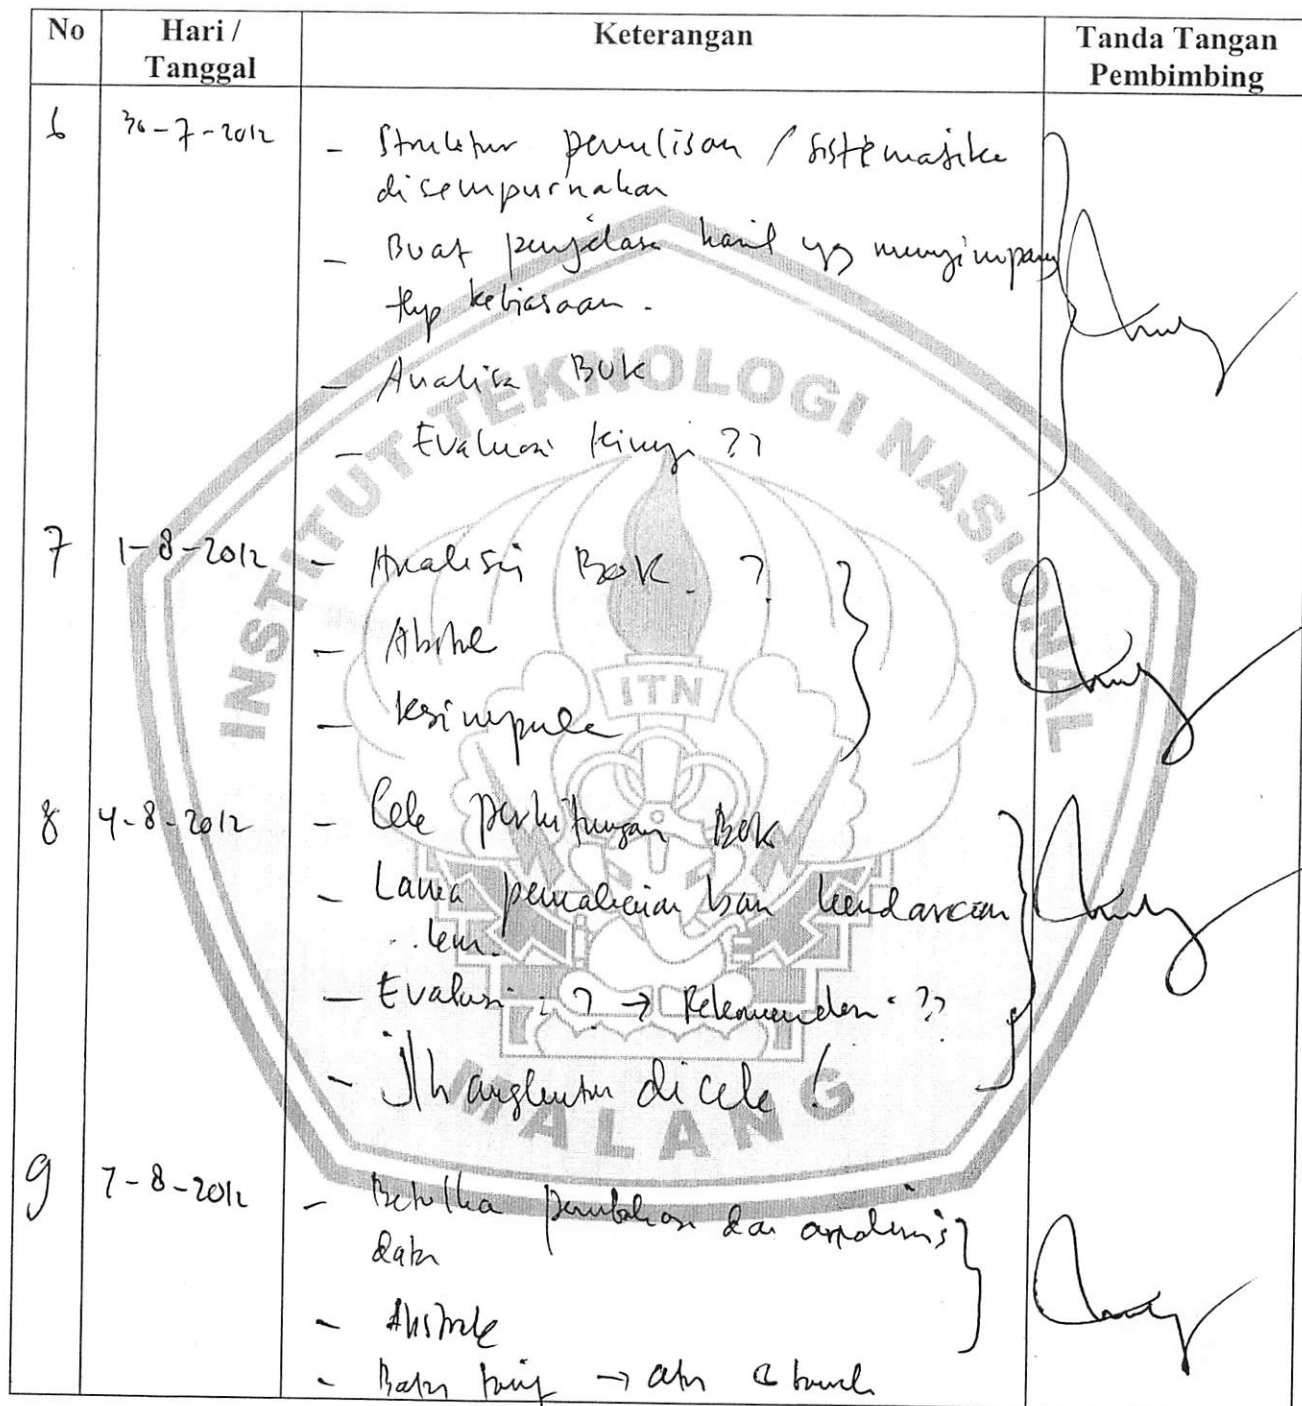 No Hari / Tanggal Keterangan Tanda Tangan Pembimbing
6 30-7-2012 - Struktur penulisan / sistematika
disempurnakan
- Buat penjelasan hasil yg menyimpang
thp kebiasaan.
- Analisa BOK
- Evaluasi kinerja ??
7 1-8-2012 - Analisis BOK ?
- Abstrak
- Kesimpulan
8 4-8-2012 - Cek perhitungan BOK
- Lama pemakaian ban kendaraan
- Evaluasi ? → Rekomendasi ??
- Jlh angkutan di cek !
9 7-8-2012 - Betulkan pembahasan dan analisis
data
- Abstrak
-
INSTITUT TEKNOLOGI NASIONAL
ITN
MALANG